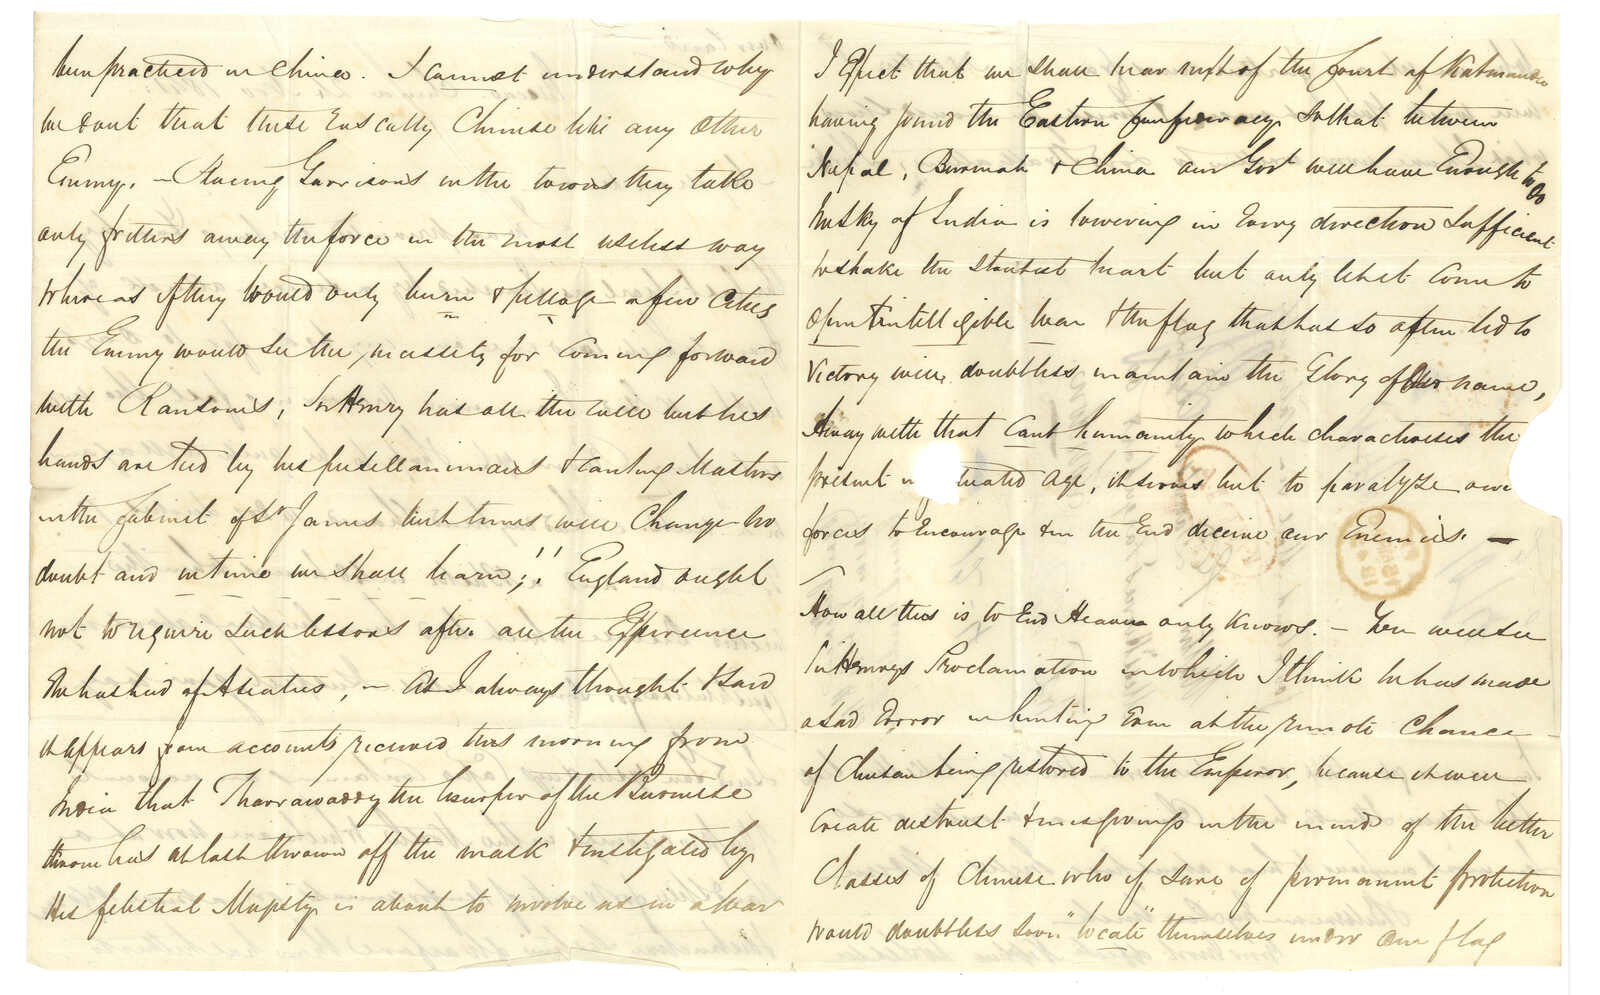 been practiced in China. I cannot understand why
we dont treat these rascally Chinese like any other
Enemy. – Placing Garrisons in the towns they take
only fritters away the force in the most useless way
whereas if they would only burn & pillage a few Cities
the Enemy would see the necessity for coming forward
with Ransoms, Sir Henry has all the will but his
hands are tied by his pusillanimous & canting Masters
in the Cabinet of St James but times will Change no
doubt and in time we shall learn;!! England ought
not to require such lessons after all the Experience
She has had of Asiatics, – As I always thought & said
it appears from accounts received this morning from
India that Tharrawaddy the Usurper of the Burmese
throne has at last thrown off the mask & instigated by
His Celestial Majesty is about to involve us in a War
I Expect that we shall hear next of the Court of Katmandoo
having joined the Eastern Confederacy so that between
Nepal, Burmah & China our Govt will have Enough to do
The Sky of India is lowering in Every direction Sufficient
to shake the stoutest heart but only let it come to
open & intelligible war & the flag that has so often led to
Victory will doubtless maintain the Glory of Our name,
Away with that Cant humanity which characterises the
present age, it serves but to paralyze our
forces to Encourage & in the End deceive our Enemies. –
How all this is to End Heaven only Knows. – You will see
Sir Henrys Proclamation in which I think he has made
a sad Error in hinting Even at the remote Chance
of Chusan being restored to the Emperor, because it will
Create distrust & misgivings in the minds of the better
Classes of Chinese who if sure of permanent protection
would doubtless soon "locate" themselves under our flag